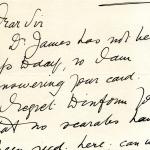 Dear Sir
Dr James has not be
up Today, so I am
answering your card.
I regret to inform yo
at no scarabs ha
been seed here. can w